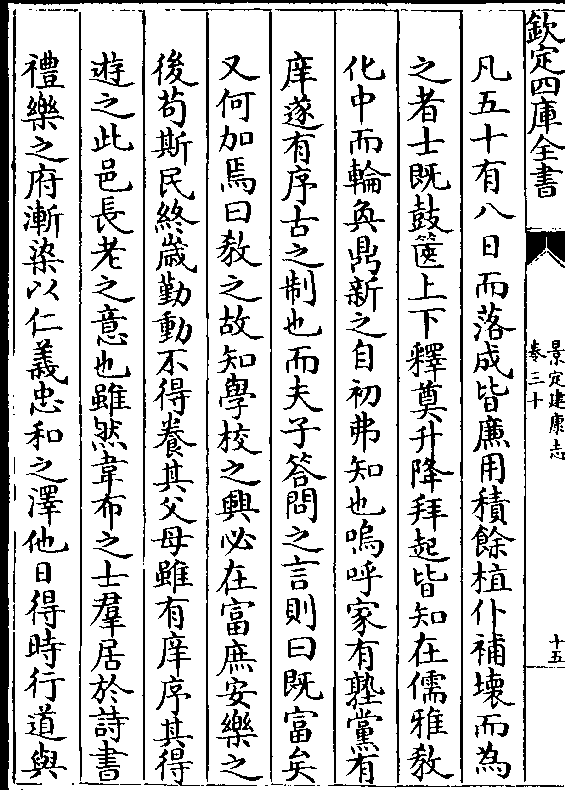 欽定四庫全書
景定建康志
卷三十
十五
凡五十有八日而落成皆廉用積餘植仆補壞而為
之者士既鼓篋上下釋奠升降拜起皆知在儒雅教
化中而輪奐鼎新之自初弗知也嗚呼家有塾黨有
庠遂有序古之制也而夫子答問之言則曰既富矣
又何加焉曰教之故知學校之興必在富庶安樂之
後苟斯民終歲勤動不得養其父母雖有庠序其得
遊之此邑長老之意也雖然韋布之士羣居於詩書
禮樂之府漸染以仁義忠和之澤他日得時行道與